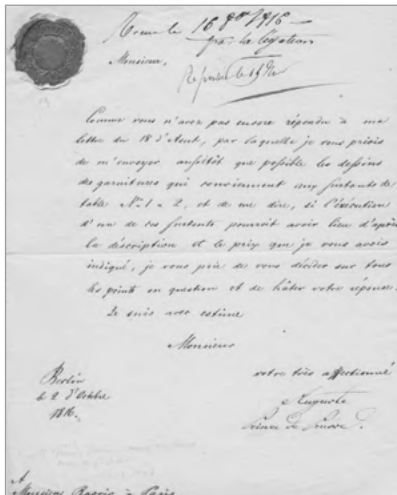 le 16 8bre 1816
par la légation
Monsieur,
Répondu le 19
Comme vous n'avez pas encore répondu à ma
lettre du 18 d'Aout, par laquelle je vous priois
de m'envoyer aussitôt que possible les dessins
des garnitures qui conviennent aux surtouts de
table No. 1 & 2, et de me dire, si l'exécution
d'un de ces surtouts pourroit avoir lieu d'après
la description et le prix que je vous avois
indiqué, je vous prie de vous décider sur tous
les points en question et de hâter votre réponse.
Je suis avec estime
Monsieur
votre très affectionné
Auguste
Prince de Prusse.
Berlin
le 2 d'Octobre
1816.
A
Monsieur à Paris